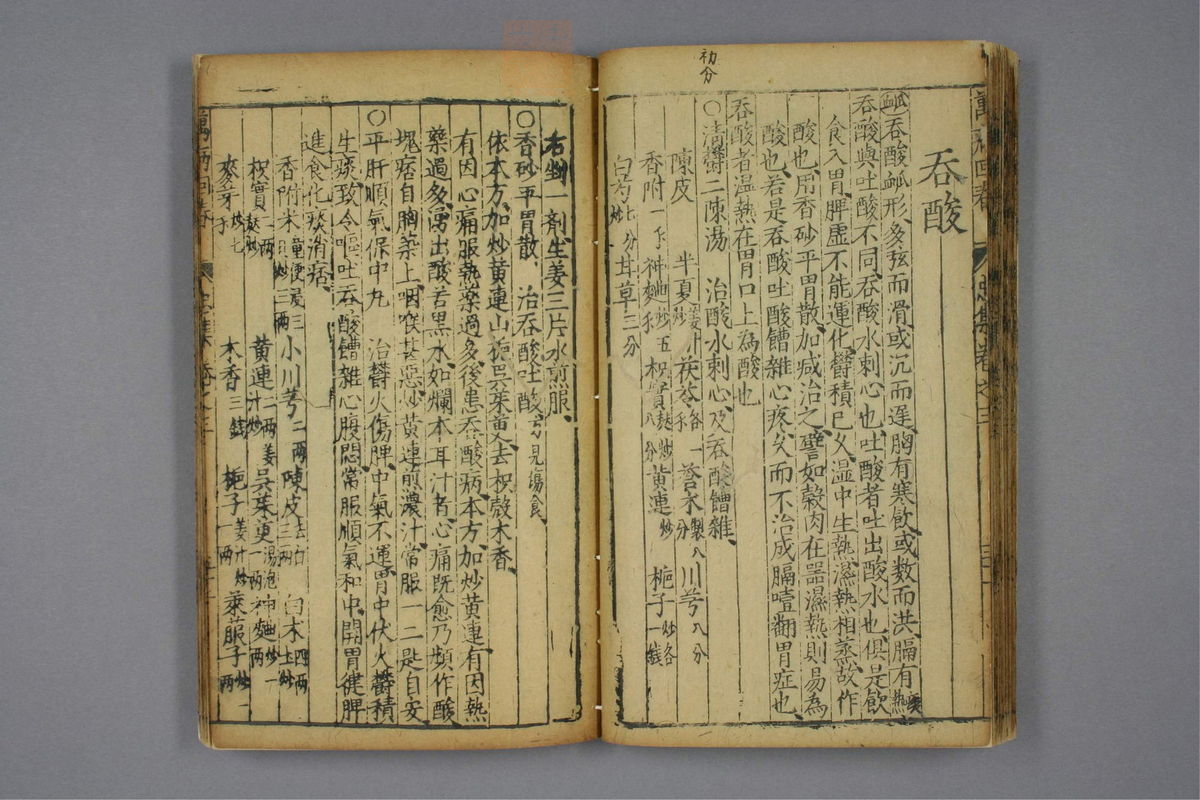 初分
吞酸
脈 吞酸脈形多弦而滑或沉而遲胸有寒飲或数而洪膈有痰熱
吞酸與吐酸不同吞酸水刺心也吐酸者吐出酸水也俱是飲
食入胃脾虛不能運化鬱積已久濕中生熱濕熱相蒸故作
酸也用香砂平胃散加减治之譬如榖肉在器濕熱則易為
酸也若是吞酸吐酸嘈雜心疼久而不治成膈噎翻胃症也
吞酸者湿熱在胃口上為酸也
○清鬱二陳湯 治酸水刺心及吞酸嘈雜
陳皮 半夏姜汁炒 茯苓各一 蒼术製八分 川芎八分
香附一 神麯炒五 枳實麸炒八分 黄連炒 梔子炒各一錢
白芍炒七分 甘草三分
右剉一劑生姜三片水煎服
○香砂平胃散 治吞酸吐酸方見傷食
依本方加炒黄連山梔吳茱萸去枳殼木香
有因心痛服熱藥過多後患吞酸病本方加炒黄連有因熱
藥過多湧出酸苦黒水如爛木耳汁者心痛既愈乃頻作酸
塊痞自胸築上咽喉甚惡炒黄連煎濃汁常服一二匙自安
○平肝順氣保中丸 治鬱火傷脾中氣不運胃中伏火鬱積
生痰致令嘔吐吞酸嘈雜心腹悶常服順氣和中開胃健脾
進食化痰消痞
香附米童便浸三炒三两 小川芎二两 陳皮去白三两 白术四两土炒
枳實二两麸炒 黄連二两姜汁炒 吳茱萸一两湯泡 神麯炒一两
麥芽炒七 木香三錢 梔子姜汁炒一两 萊菔子炒一两
萬病回春 忠集卷之三